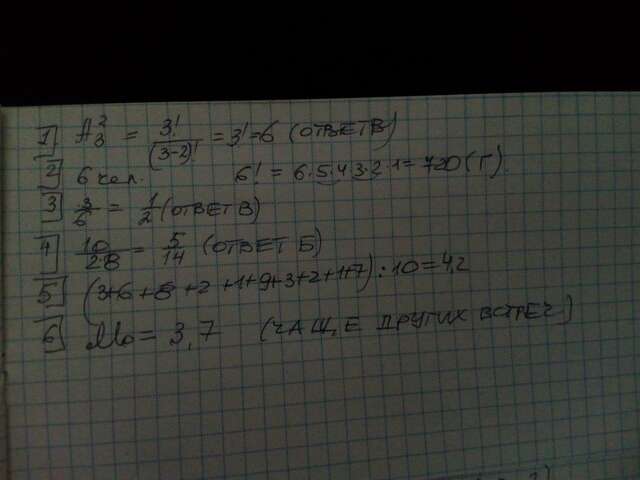 1] A₃² = 3!/(3-2)! = 3! = 6 (ОТВЕТ В)
2] 6 чел. 6! = 6·5·4·3·2·1 = 720 (Г)
3] 3/6 = 1/2 (ОТВЕТ В)
4] 10/28 = 5/14 (ОТВЕТ Б)
5] (3+6+8+2+1+9+3+2+1+7) : 10 = 4,2
6] Mo = 3,7 (ЧАЩЕ ДРУГИХ ВСТРЕЧ)